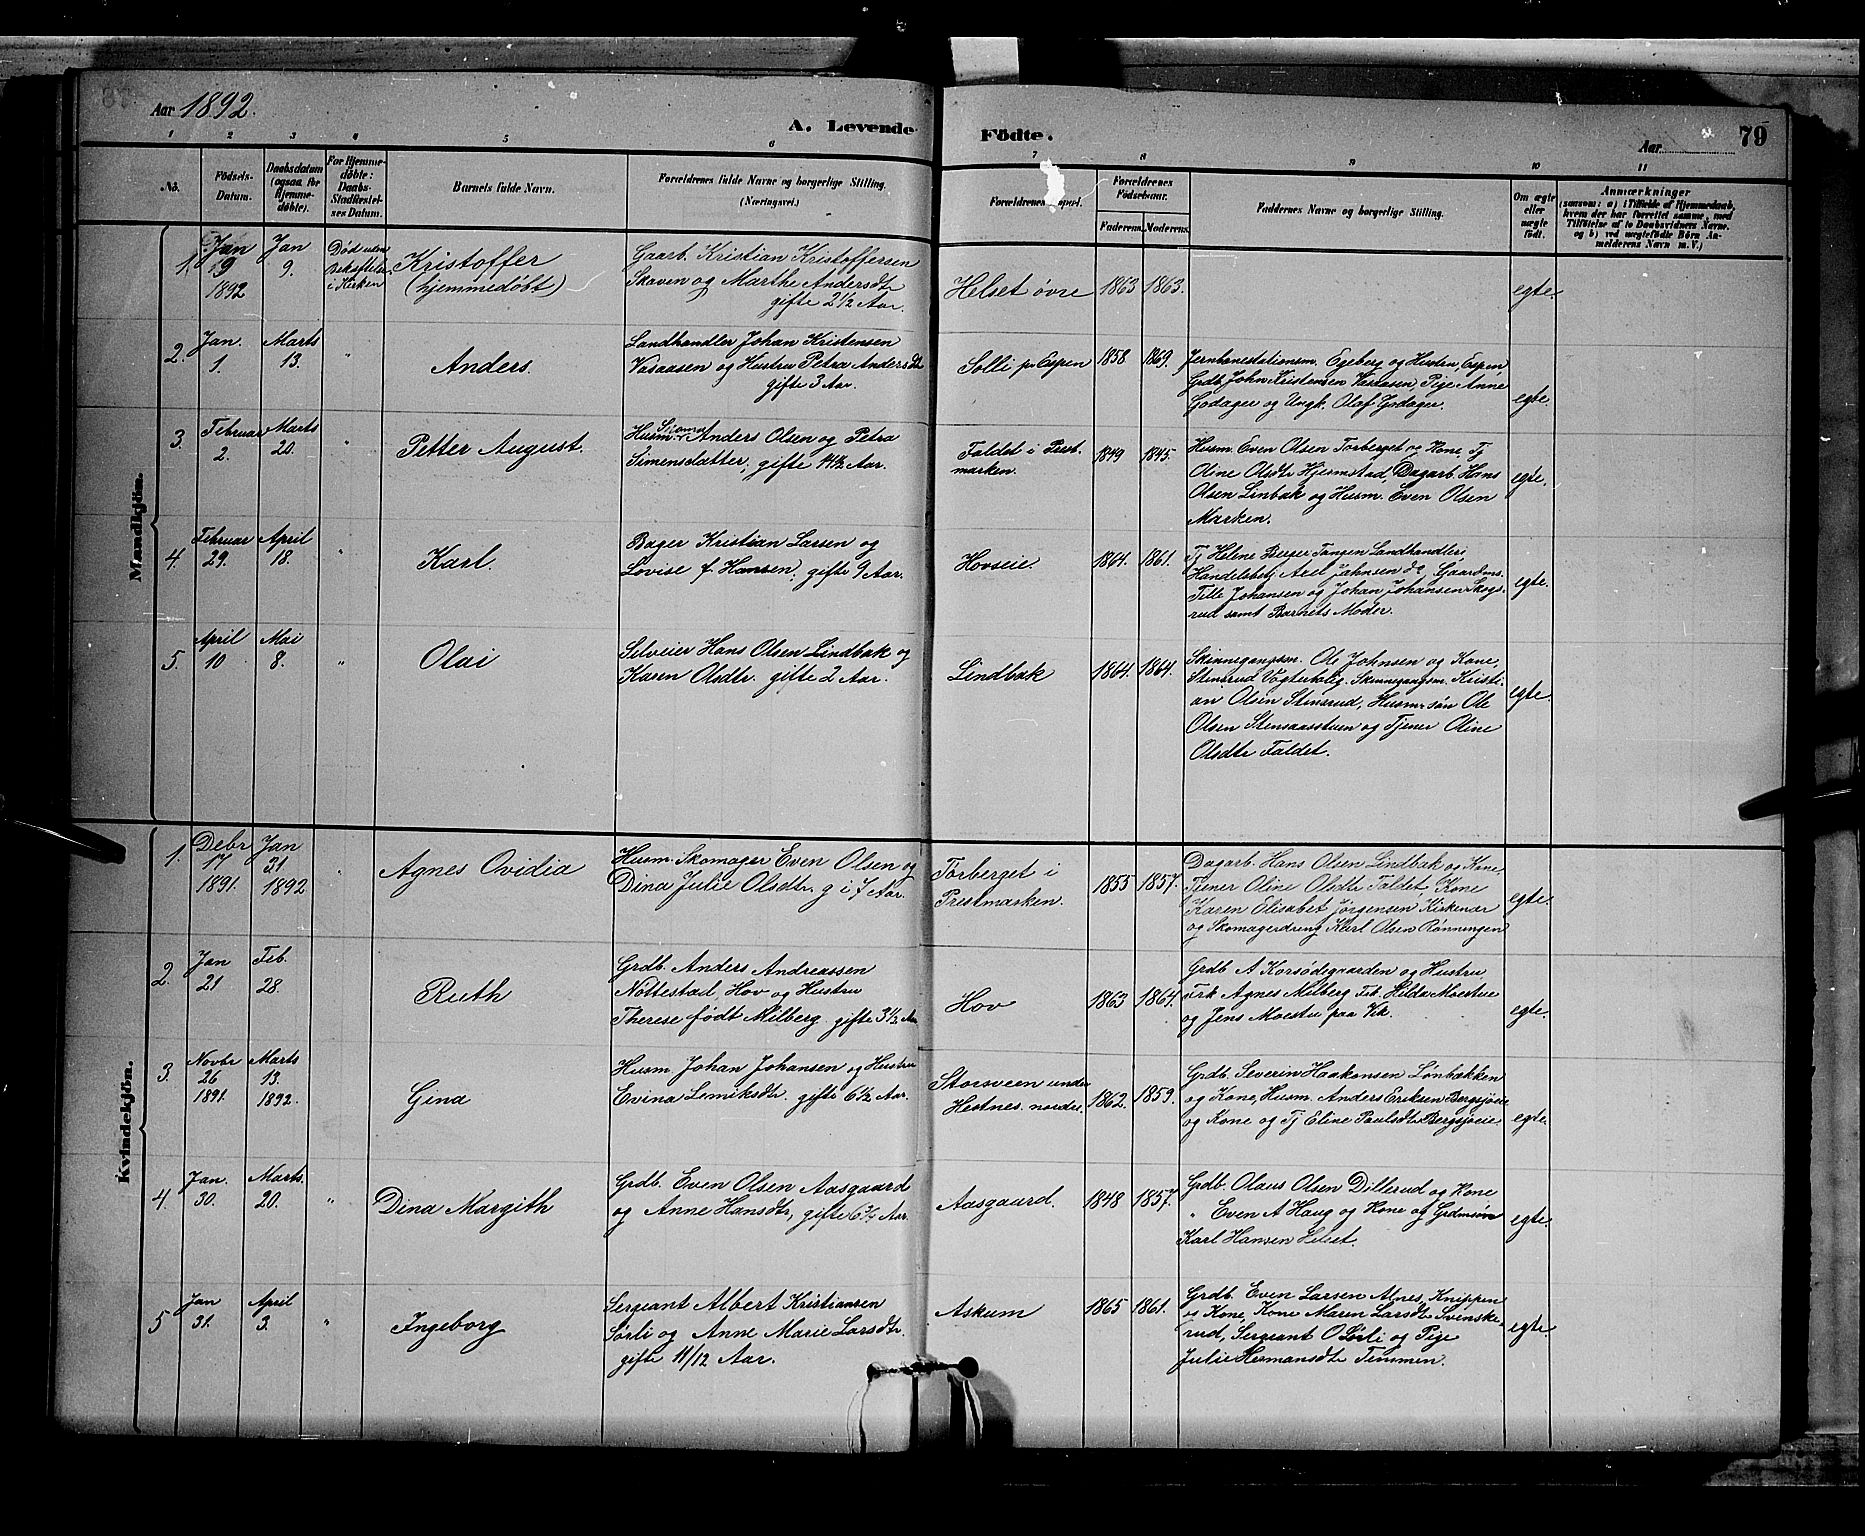 Aar 1892.
A. Levende Födte.
Aar
79
1 2 3 4 5 6 7 8 9 10 11
No.
Födsels-
Datum.
Daabsdatum
(ogsaa for
Hjemme-
døbte).
For Hjemme-
døbte:
Daabs-
Stadfæstel-
ses Datum.
Barnets fulde Navn.
Forældrenes fulde Navne og borgerlige Stilling.
(Næringsvei.)
Forældrenes
Forældrenes
Födselsaar.
Faderens. Moderens.
Faddernes Navne og borgerlige Stilling.
Om ægte
eller
uægte
født.
Anmærkninger
(saasom: a) i Tilfælde af Hjemmedaab,
hvem der har forrettet samme, med
Tilföielse af to Daabsvidners Navne.
og b) ved uægtefödte Börn An-
melderens Navn m. V.)
Mandkjön.
1.
Jan
9
1892
Jan
9.
Död uden
Bekræftelse
i Kirken
Kristoffer
(hjemmedöbt)
Gaarb. Kristian Kristoffersen
Skaven og Marthe Andersdtr
gifte 2 1/2 Aar.
Helset övre
1863
1863.
egte.
2.
Jan.
1.
Marts
13.
"
Anders.
Landhandler Johan Kristensen
Vasaasen og Hustru Petra Andersdtr
gifte 3 Aar.
Solli pr Espen
1858
1869.
Jernbanestationsm. Egeberg og Hustru, Espen,
Grdb. John Kristensen Vasaasen, Pige Anne
Godager og Ungk. Olaf Godager.
egte.
3.
Februar
2.
Marts
20.
"
Petter August.
Husm. Skomr Anders Olsen og Petra
Simensdatter, gifte 14 1/2 Aar.
Faldet i Prest-
marken.
1849
1845.
Husm. Even Olsen Torberget og Kone, Tj
Oline Olsdtr Hjermstad, Dagarb. Hans
Olsen Linbak og Husm. Even Olsen
Marken.
egte.
4.
Februar
29.
April
18.
"
Karl.
Bager Kristian Larsen og
Lovise f. Hansen, gifte 9 Aar.
Hovseie.
1864.
1861.
Tj Helene Berger Tangen Landhandleri,
Handelsbetj. Axel Jahnsen do, Gaardens.
Tille Johansen og Johan Johansen Skogs-
rud samt Barnets Moder.
egte.
5.
April
10
Mai
8.
"
Olai
Selveier Hans Olsen Lindbak og
Karen Olsdtr. gifte 2 Aar.
Lindbak
1864.
1864.
Skinnegangsm. Ole Johnsen og Kone,
Stensrud Vogterbolig. Skinnegangsm. Kristi-
an Olsen Stensrud, Husm.søn Ole
Olsen Stensaasstuen og Tjener Oline
Olsdtr Faldet.
egte.
Kvindekjön.
1.
Debr
17
1891.
Jan
31
1892
"
Agnes Ovidia
Husm. Skomager Even Olsen og
Dina Julie Olsdtr. g i 7 Aar.
Torberget i
Prestmarken.
1855
1857.
Dagarb. Hans Olsen Lindbak og Kone,
Tjener Oline Olsdtr Faldet, Kone
Karen Elisabet Jørgensen Kirkenær
og Skomagerdreng Karl Olsen Rønningen
egte.
2.
Jan
21
Feb.
28.
Ruth
Grdb. Anders Andreassen
Nottestad, Hov og Hustru
Therese født Milberg gifte 3 1/2 Aar
Hov
1863
1864.
Grdb A Korsødegaarden og Hustru
Frk Agnes Milberg Frk. Hilda Moestue
og Jens Moestu paa Vik.
egte.
3.
Novbr
26
1891.
Marts
13.
1892.
Gina
Husm. Johan Johansen og Hustru
Evina Lemiksdtr. gifte 6 1/2 Aar.
Storsveen under
Hestnes nordre.
1862.
1859.
Grdb. Severin Haakensen Lønbækken
og Kone, Husm. Anders Eriksen Bergsjøeie
og Kone og Tj Eline Paulsdtr Bergsjøeie.
egte.
4.
Jan.
30.
Marts.
20.
"
Dina Margith
Grdb. Even Olsen Aasgaard
og Anne Hansdtr, gifte 6 3/4 Aar.
Aasgaard.
1848
1857.
Grdb. Olaus Olsen Dillerud og Kone
" Even A Haug og Kone og Grdmsøn
Karl Hansen Helset.
egte.
5
Jan
31.
April
3.
"
Ingeborg
Sergeant Albert Kristiansen
Sørli og Anne Marie Larsdtr.
gifte 11/12 Aar.
Askum
1865
1861.
Grdb. Even Larsen Alnes, Knippen
og Kone, Kone Maren Larsdtr Svenske-
rud, Sergeant O Sørli og Pige
Julie Hermansdtr Timmen.
egte.